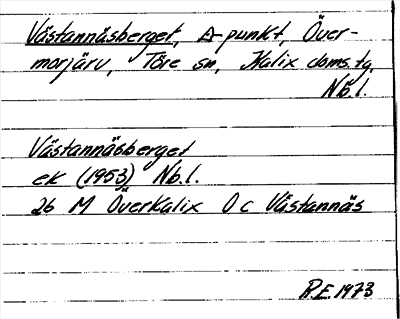 Västannäsberget, Δ-punkt, Över-
morjärv, Töre sn, Kalix doms.tg,
Nb.l.
Västannäsberget
ek (1953) Nb.l.
26 M Överkalix O c Västannäs
R.E. 1973